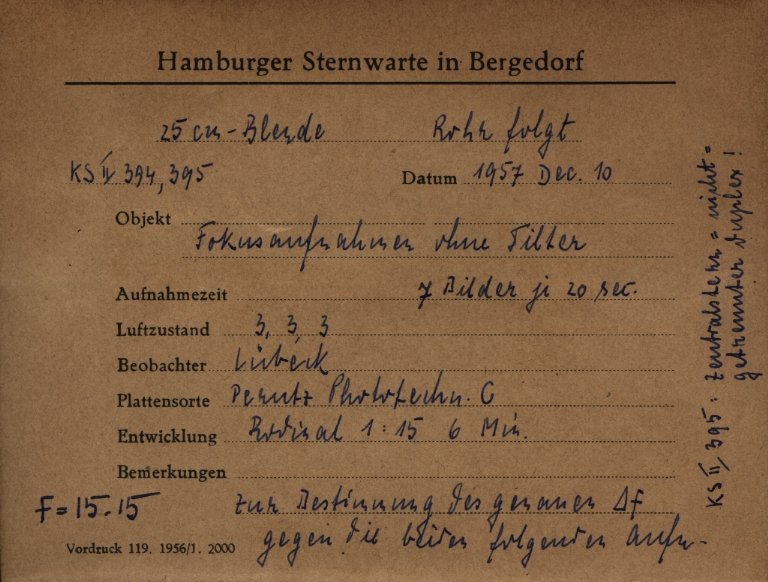 Hamburger Sternwarte in Bergedorf
25 cm-Blende Rohr folgt
KS II 394, 395 Datum 1957 Dec. 10
Objekt
Fokusaufnahmen ohne Filter
Aufnahmezeit 7 Bilder je 20 sec.
Luftzustand 3, 3, 3
Beobachter Lübeck
Plattensorte Perutz Phototechn. C
Entwicklung Rodinal 1:15 6 Min.
Bemerkungen
F = 15.15 Zur Bestimmung des genauen Δf
gegen die beiden folgenden Aufn.
Vordruck 119. 1956/1. 2000
KS II, 395: Zentralstern = nicht =
getrennter Duplex!